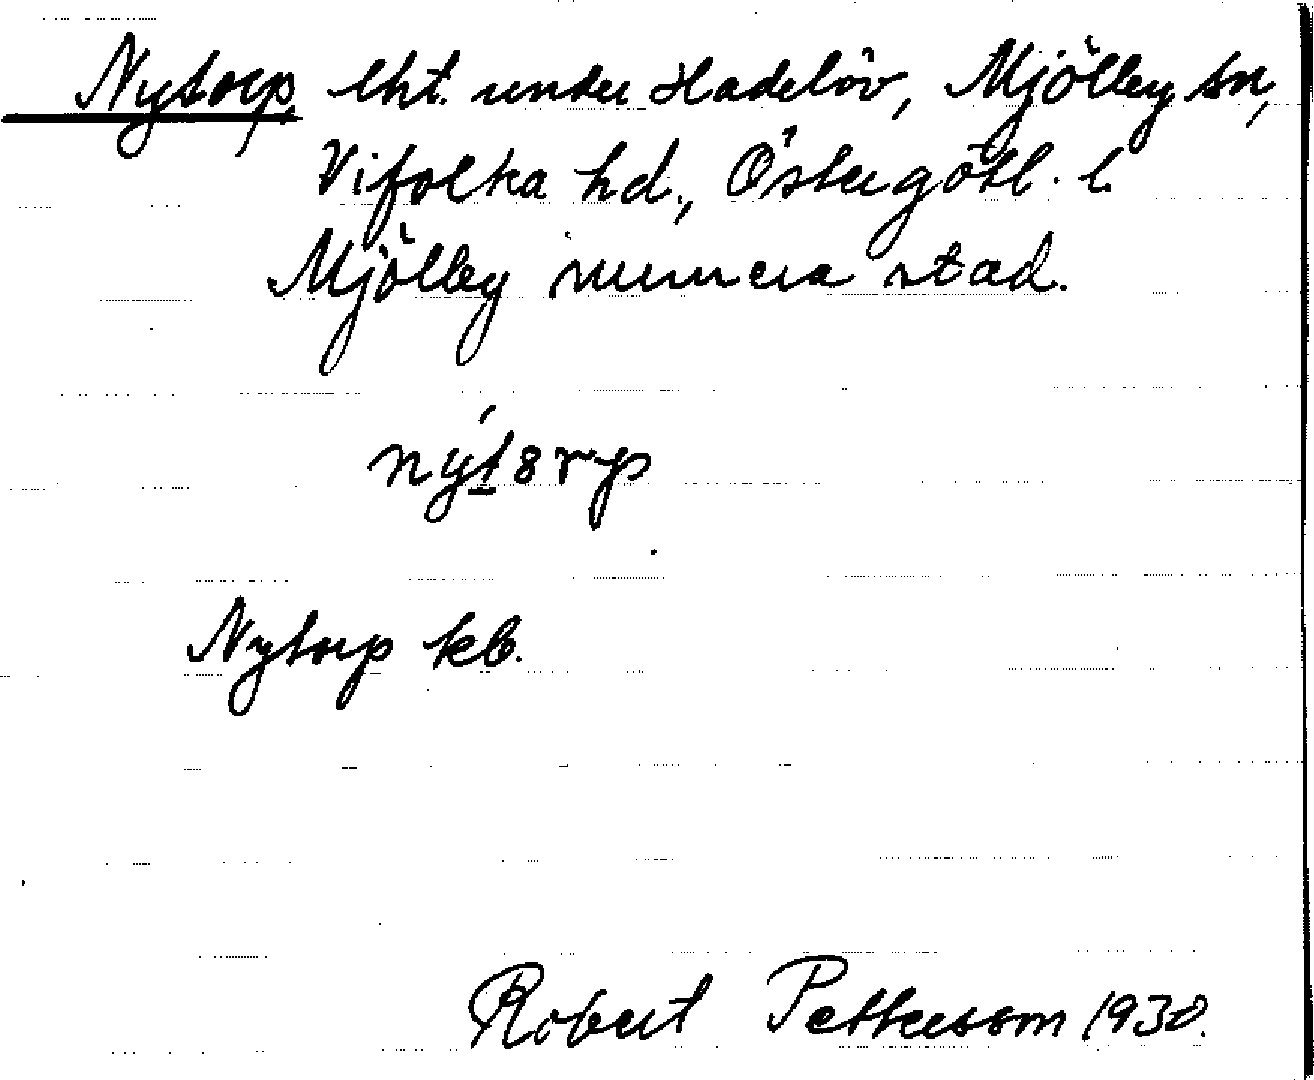 Nytorp, lht. under Hadelöv, Mjölby sn,
Vifolka hd., Östergötl. l.
Mjölby numera stad.
nýt8rp
Nytorp kb.
Robert Pettersson 1930.